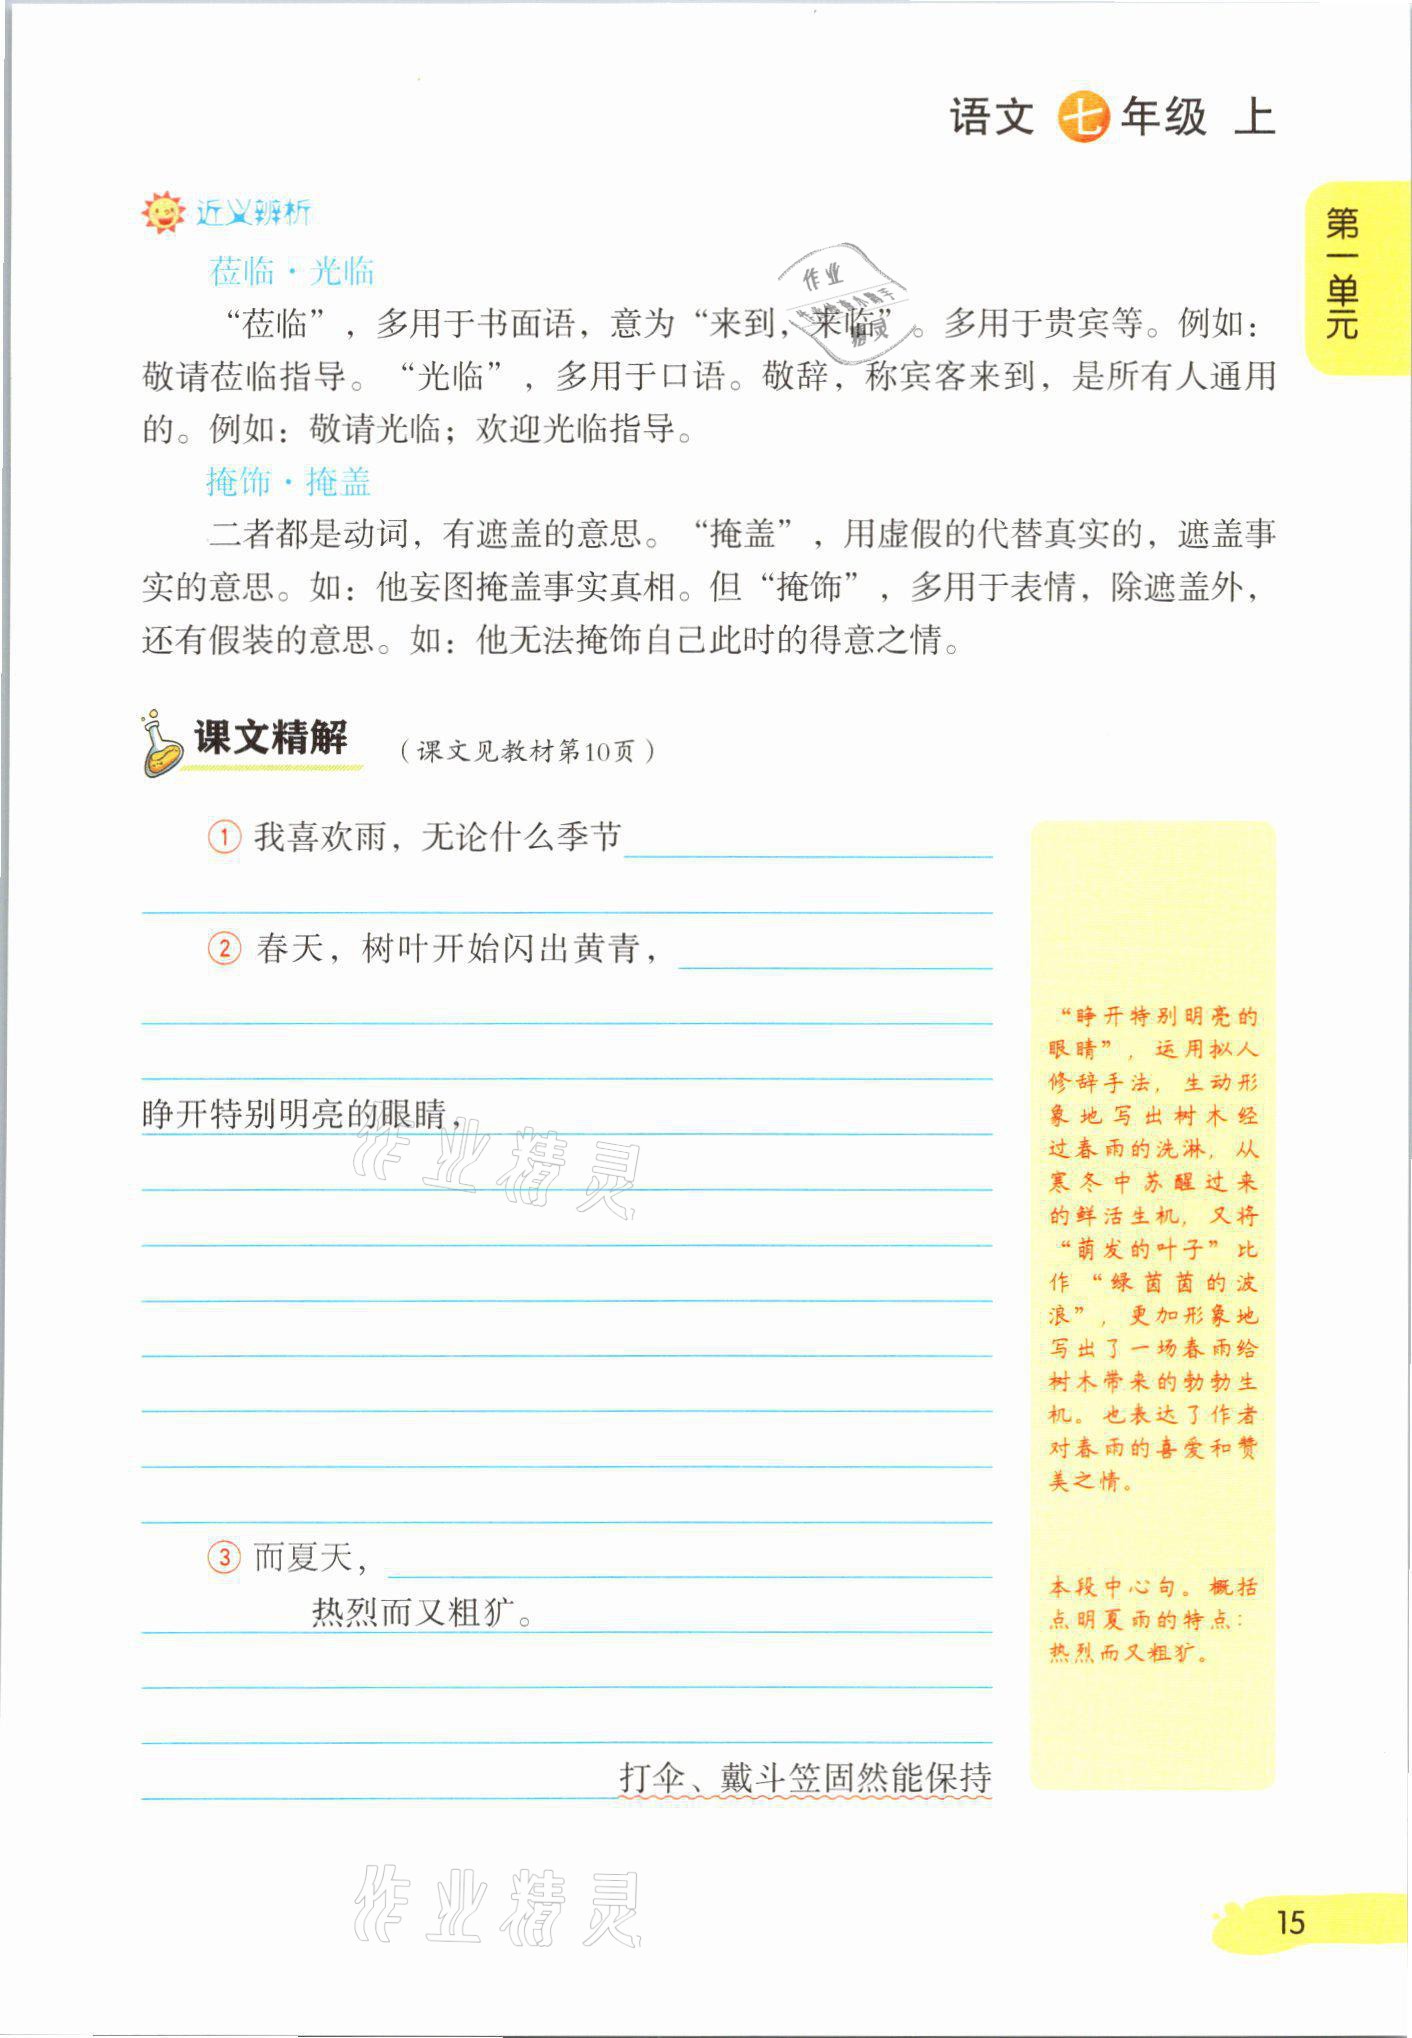 语文 七 年级 上
第一单元
近义辨析
莅临·光临
“莅临”，多用于书面语，意为“来到，来临”。多用于贵宾等。例如：
敬请莅临指导。“光临”，多用于口语。敬辞，称宾客来到，是所有人通用
的。例如：敬请光临；欢迎光临指导。
掩饰·掩盖
二者都是动词，有遮盖的意思。“掩盖”，用虚假的代替真实的，遮盖事
实的意思。如：他妄图掩盖事实真相。但“掩饰”，多用于表情，除遮盖外，
还有假装的意思。如：他无法掩饰自己此时的得意之情。
课文精解 （课文见教材第10页）
① 我喜欢雨，无论什么季节
② 春天，树叶开始闪出黄青，
睁开特别明亮的眼睛，
③ 而夏天，
热烈而又粗犷。
打伞、戴斗笠固然能保持
“睁开特别明亮的
眼睛”，运用拟人
修辞手法，生动形
象地写出树木经
过春雨的洗淋，从
寒冬中苏醒过来
的鲜活生机，又将
“萌发的叶子”比
作“绿茵茵的波
浪”，更加形象地
写出了一场春雨给
树木带来的勃勃生
机。也表达了作者
对春雨的喜爱和赞
美之情。
本段中心句。概括
点明夏雨的特点：
热烈而又粗犷。
作业精灵
作业精灵
15